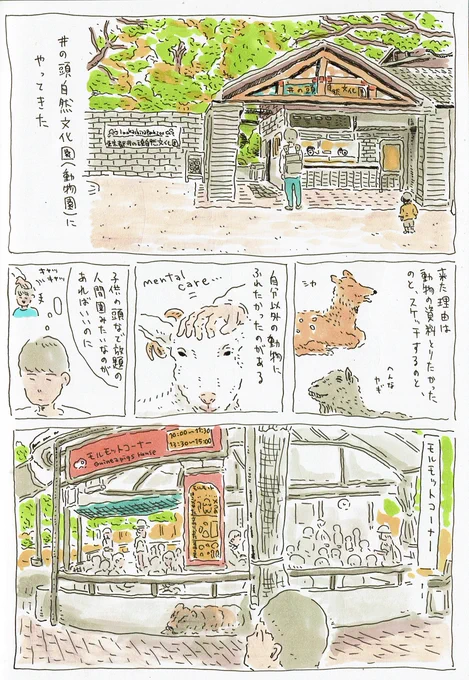 井の頭自然文化園(動物園)に
やってきた
井の頭自然文化園
来た理由は
動物の資料とりたかった
のと、スケッチするのと
シカ
へんな
ヤギ
自分以外の動物に
ふれたかったのがある
mental
care...
子供の頭なで放題の
人間園みたいなのが
あればいいのに
キャッ
キャッ
モルモットコーナー
モルモットコーナー
10:00〜11:30
13:30〜15:00